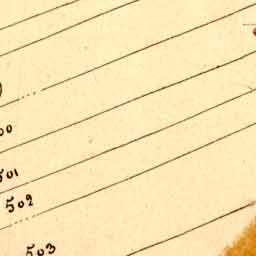 501
502
503